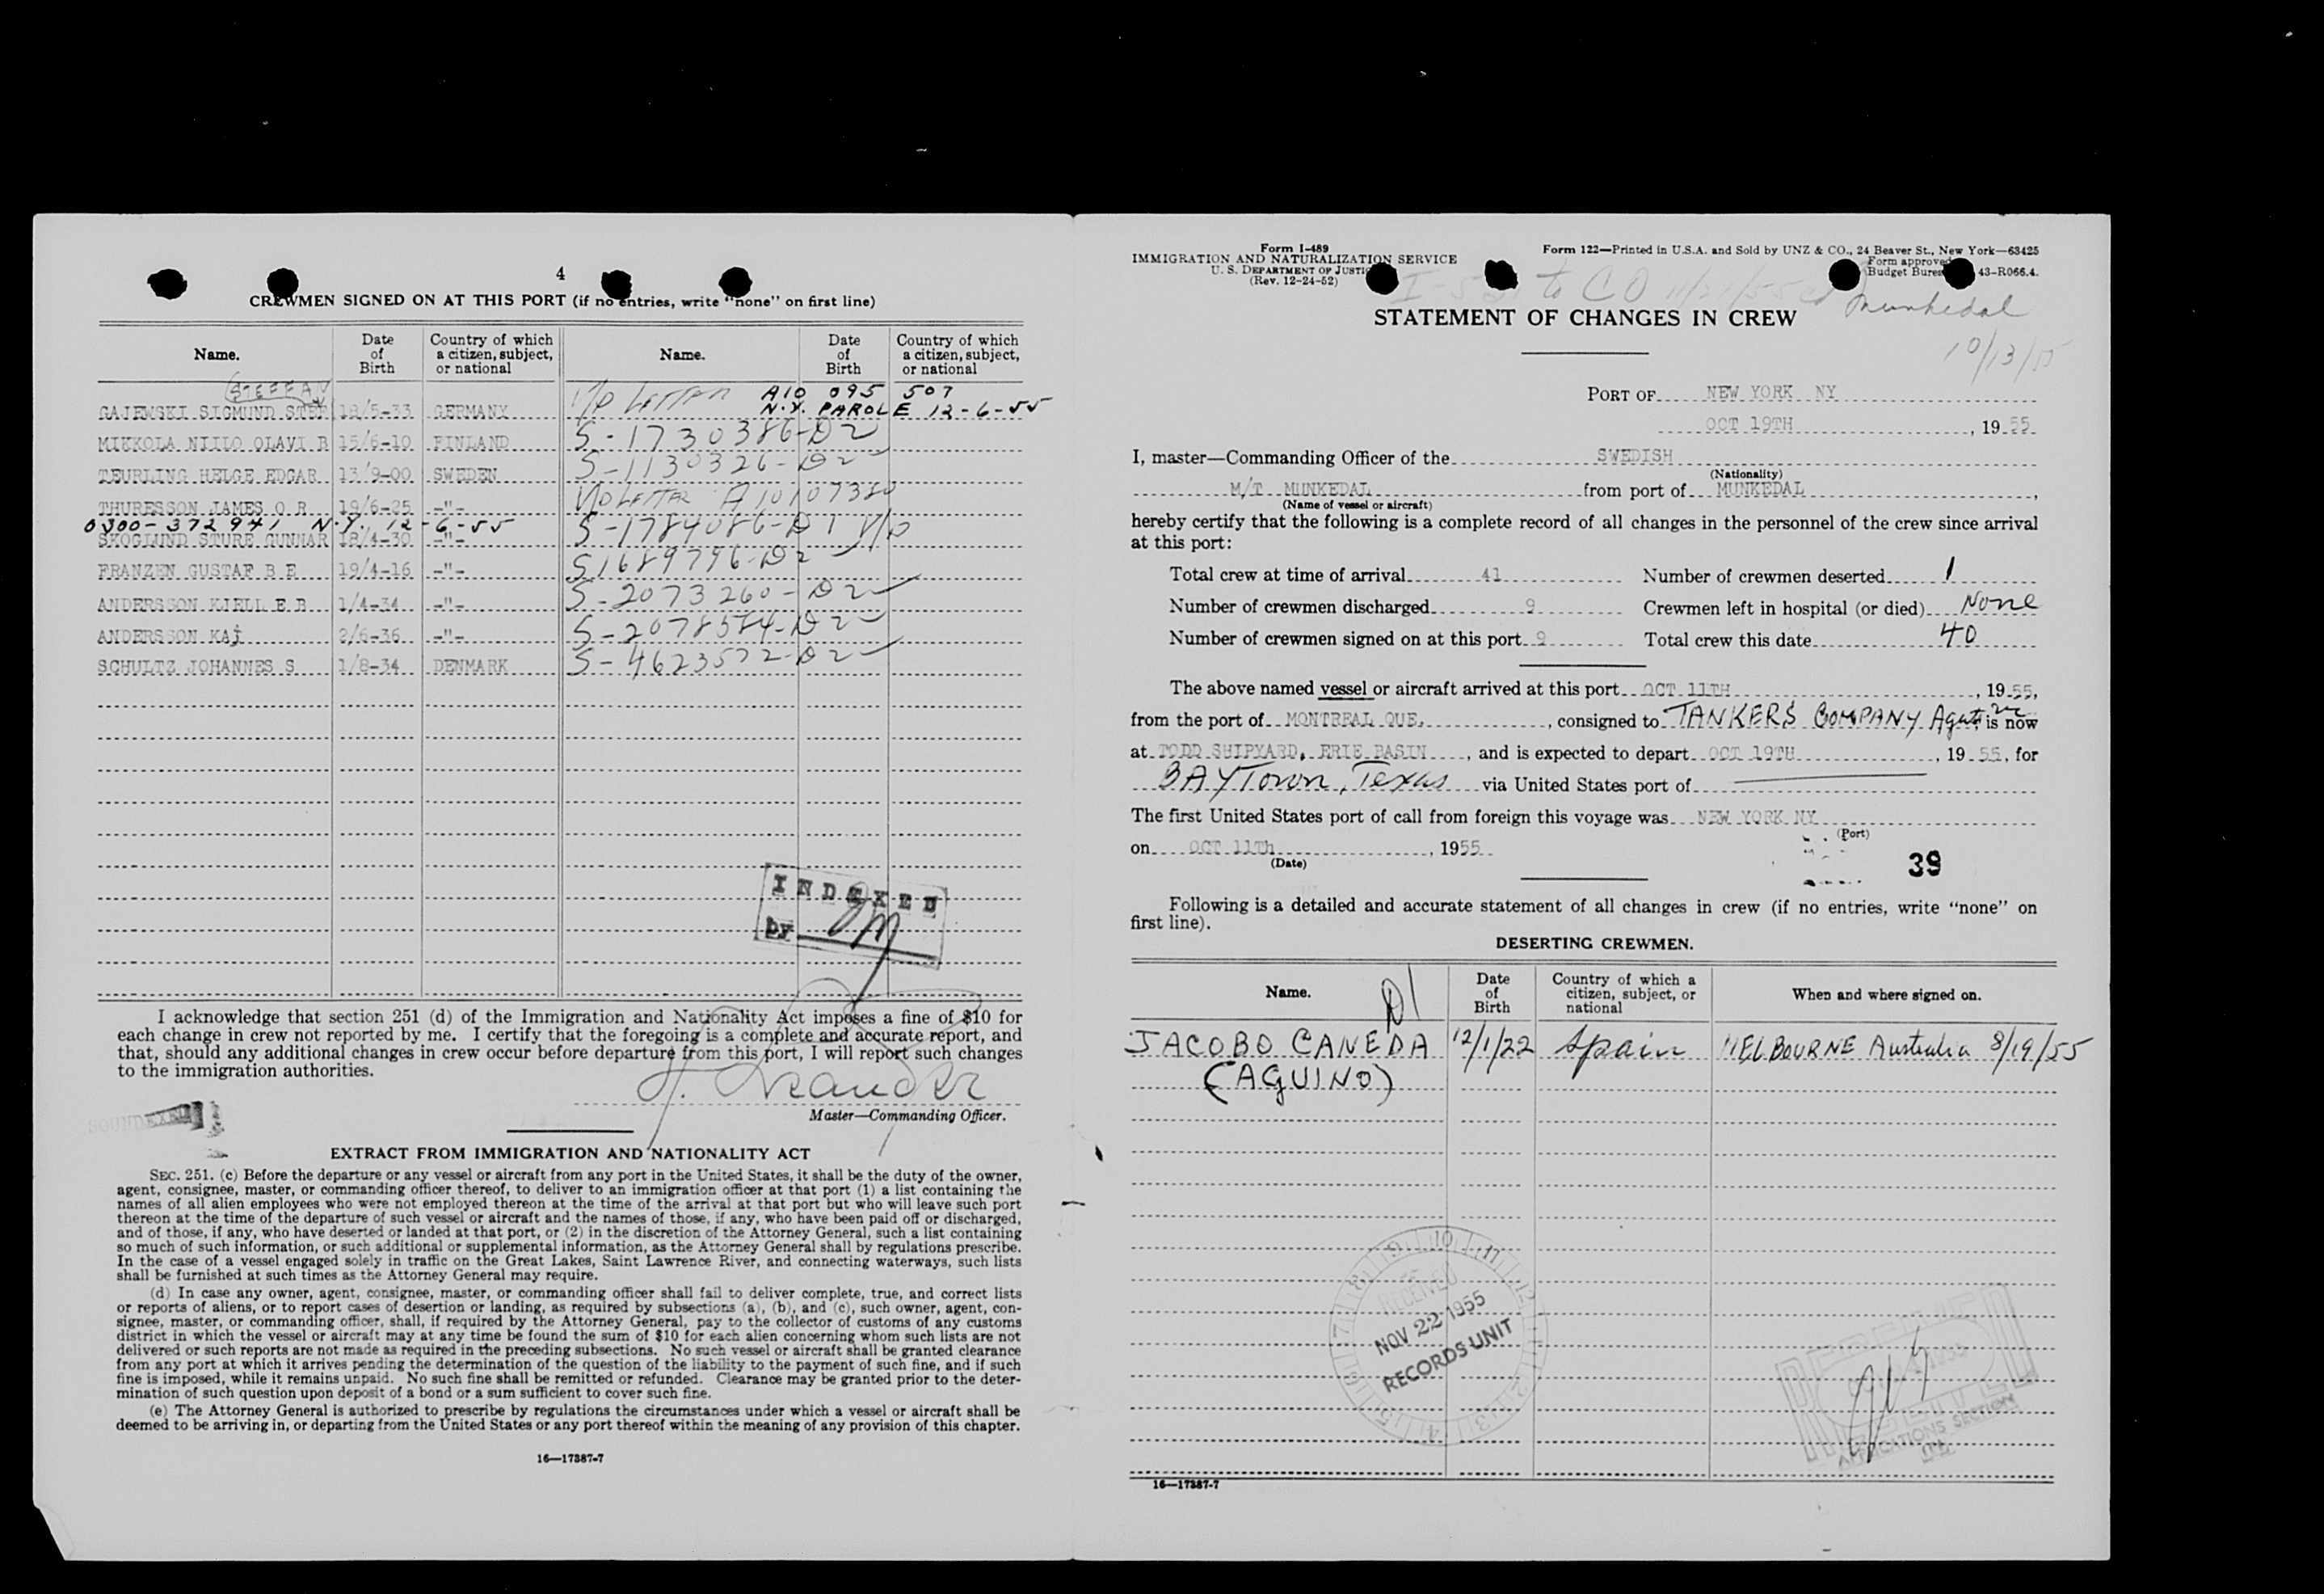 4
CREWMEN SIGNED ON AT THIS PORT (if no entries, write "none" on first line)
Name. Date of Birth Country of which a citizen, subject, or national Name. Date of Birth Country of which a citizen, subject, or national
(STEFFAN
GAJEWSKI SIGMUND STEF 18/5-33 GERMANY A10 095 507
N.Y. PAROLE 12-6-55
MIKKOLA NIILO OLAVI B 15/6-10 FINLAND S-1730386-D2
TEURLING HELGE EDGAR 13/9-00 SWEDEN S-1130326-D2
THURESSON JAMES O R 19/6-25 -"- LETTER A10107380
0300-372941 N.Y. 12-6-55
SKOGLUND STURE GUNNAR 18/4-30 -"- S-1784086-D1
FRANZEN GUSTAF B E 19/4-16 -"- S1689796-D2
ANDERSSON KJELL E B 1/4-34 -"- S-2073260-D2
ANDERSSON KAj 2/6-36 -"- S-2078584-D2
SCHULTZ JOHANNES S 1/8-34 DENMARK S-4623572-D2
INDEXED
by
I acknowledge that section 251 (d) of the Immigration and Nationality Act imposes a fine of $10 for
each change in crew not reported by me. I certify that the foregoing is a complete and accurate report, and
that, should any additional changes in crew occur before departure from this port, I will report such changes
to the immigration authorities.
Master—Commanding Officer.
EXTRACT FROM IMMIGRATION AND NATIONALITY ACT
SEC. 251. (c) Before the departure or any vessel or aircraft from any port in the United States, it shall be the duty of the owner,
agent, consignee, master, or commanding officer thereof, to deliver to an immigration officer at that port (1) a list containing the
names of all alien employees who were not employed thereon at the time of the arrival at that port but who will leave such port
thereon at the time of the departure of such vessel or aircraft and the names of those, if any, who have been paid off or discharged,
and of those, if any, who have deserted or landed at that port, or (2) in the discretion of the Attorney General, such a list containing
so much of such information, or such additional or supplemental information, as the Attorney General shall by regulations prescribe.
In the case of a vessel engaged solely in traffic on the Great Lakes, Saint Lawrence River, and connecting waterways, such lists
shall be furnished at such times as the Attorney General may require.
(d) In case any owner, agent, consignee, master, or commanding officer shall fail to deliver complete, true, and correct lists
or reports of aliens, or to report cases of desertion or landing, as required by subsections (a), (b), and (c), such owner, agent, con-
signee, master, or commanding officer, shall, if required by the Attorney General, pay to the collector of customs of any customs
district in which the vessel or aircraft may at any time be found the sum of $10 for each alien concerning whom such lists are not
delivered or such reports are not made as required in the preceding subsections. No such vessel or aircraft shall be granted clearance
from any port at which it arrives pending the determination of the question of the liability to the payment of such fine, and if such
fine is imposed, while it remains unpaid. No such fine shall be remitted or refunded. Clearance may be granted prior to the deter-
mination of such question upon deposit of a bond or a sum sufficient to cover such fine.
(e) The Attorney General is authorized to prescribe by regulations the circumstances under which a vessel or aircraft shall be
deemed to be arriving in, or departing from the United States or any port thereof within the meaning of any provision of this chapter.
16—17387-7
Form I-489
IMMIGRATION AND NATURALIZATION SERVICE
U. S. DEPARTMENT OF JUSTICE
(Rev. 12-24-52)
Form 122—Printed in U.S.A. and Sold by UNZ & CO., 24 Beaver St., New York—63425
Form approved
Budget Bureau 43-R066.4.
Munkedal
10/13/55
STATEMENT OF CHANGES IN CREW
PORT OF NEW YORK NY
OCT 19TH, 19 55
I, master—Commanding Officer of the SWEDISH
(Nationality)
M/T MUNKEDAL from port of MUNKEDAL,
(Name of vessel or aircraft)
hereby certify that the following is a complete record of all changes in the personnel of the crew since arrival
at this port:
Total crew at time of arrival 41 Number of crewmen deserted 1
Number of crewmen discharged 9 Crewmen left in hospital (or died) None
Number of crewmen signed on at this port 9 Total crew this date 40
The above named vessel or aircraft arrived at this port OCT 11TH, 19 55,
from the port of MONTREAL QUE., consigned to TANKERS COMPANY Agents, is now
at TODD SHIPYARD, ERIE BASIN, and is expected to depart OCT 19TH, 19 55, for
BAYTown, Texas via United States port of
The first United States port of call from foreign this voyage was NEW YORK NY
(Port)
on OCT 11Th, 1955
(Date)
39
Following is a detailed and accurate statement of all changes in crew (if no entries, write "none" on
first line).
DESERTING CREWMEN.
Name. D1 Date of Birth Country of which a citizen, subject, or national When and where signed on.
JACOBO CANEDA 12/1/22 Spain MELBOURNE Australia 8/19/55
(AGUINO)
RECEIVED
NOV 22 1955
RECORDS UNIT
16—17387-7